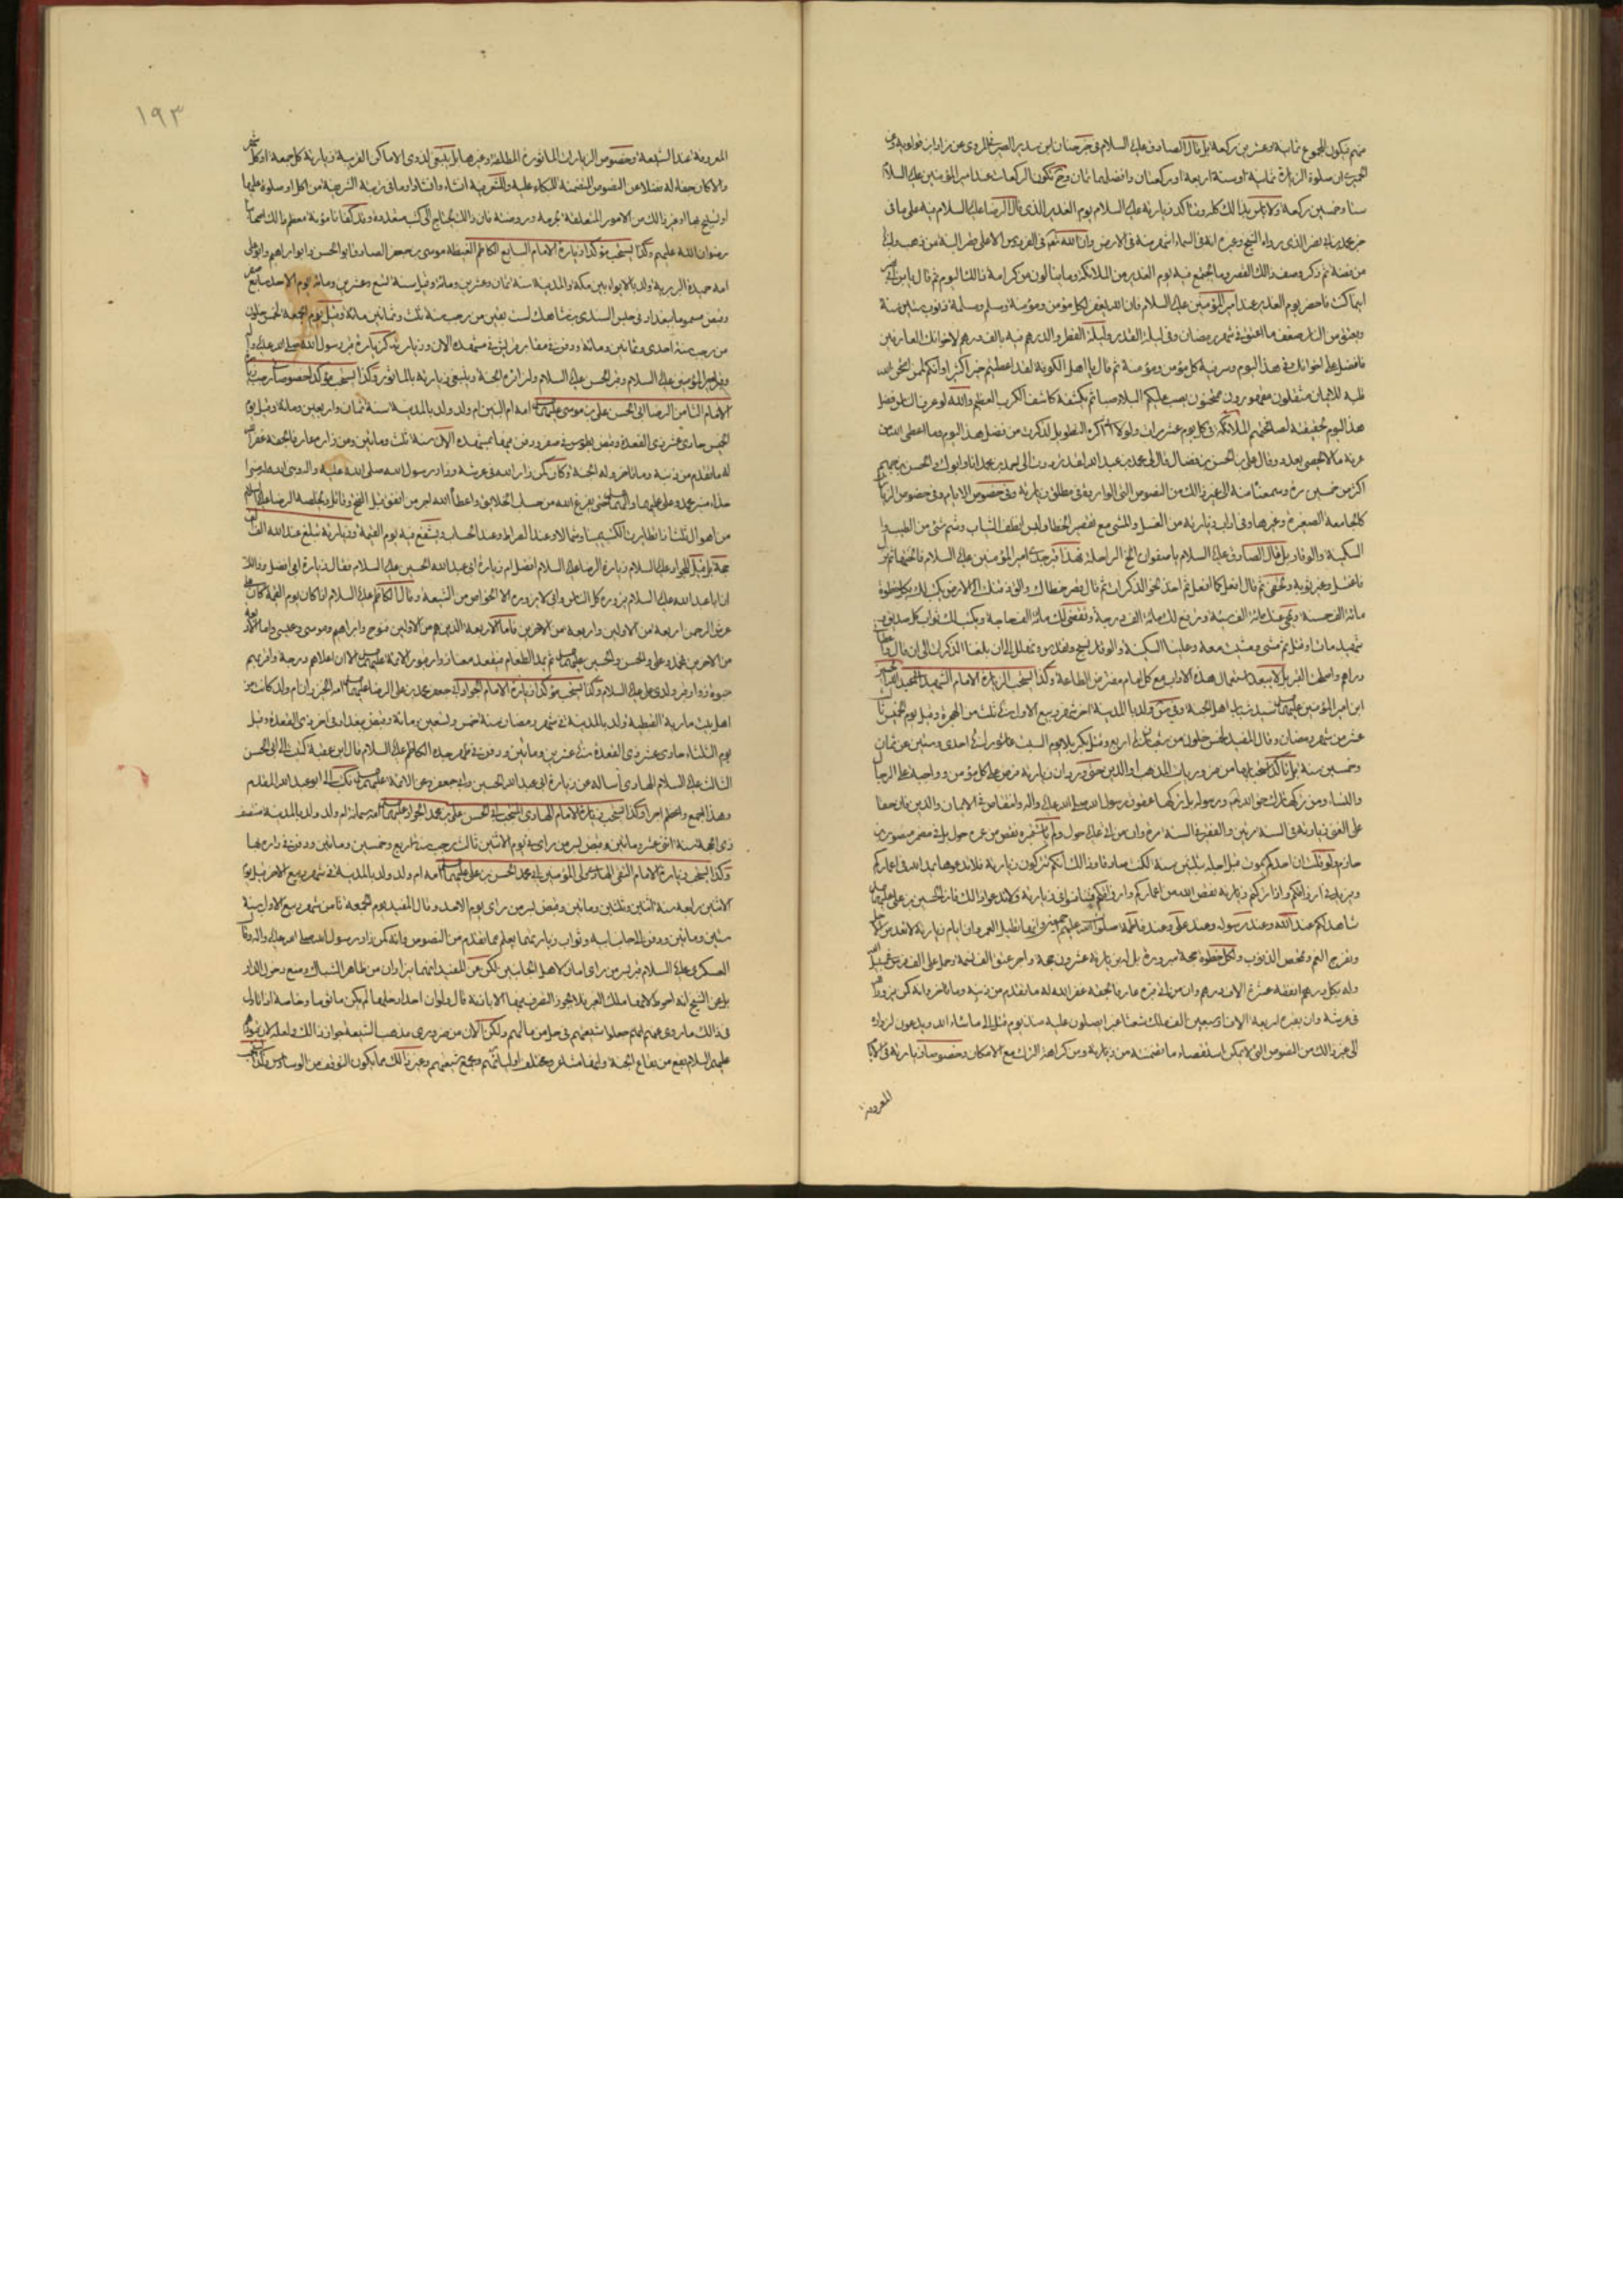 منهم فيكون المجموع ثمانية وعشرين ركعة بل قال الصادق عليه السلام في خبر حنان ابن سدير الصيرفي المروي عن مزار ابن قولويه
ان صلوة الزيارة ثمانية او ستة او اربعة او ركعتان وافضلها ثمان
ستا وخمسين ركعة ولا باس بذالك كله ويتاكد زيارته عليه السلام يوم الغدير الذي قال الرضا عليه السلام فيه على ما في
الذي رواه الشيخ وغيره انه في السماء اشهر منه في الارض وان لله تعم في الفردوس الاعلى قصرا لبنة من ذهب ولبنة
من فضة ثم ذكر وصف ذالك القصر وما يجتمع فيه يوم الغدير من الملائكة وما ينالون من كرامة ذالك اليوم ثم قال يا بن
اينما كنت فاحضر يوم الغدير عند امير المؤمنين عليه السلام فان الله يغفر لكل مؤمن ومؤمنة ومسلم ومسلمة ذنوب ستين سنة
ويعتق من النار ضعف ما اعتق في شهر رمضان وفي ليلة القدر وليلة الفطر والدرهم فيه بالف درهم لاخوانك العارفين
فافضل على اخوانك في هذا اليوم وسر فيه كل مؤمن ومؤمنة ثم قال يا اهل الكوفة لقد اعطيتم خيرا كثيرا وانكم لممن امتحن الله
قلبه للايمان مستقلون مقهورون ممتحنون يصب عليكم البلاء صبا ثم يكشفه كاشف الكرب العظيم والله لو عرف الناس فضل
هذا اليوم بحقيقته لصافحتهم الملائكة في كل يوم عشر مرات ولولا اني اكره التطويل لذكرت من فضل هذا اليوم وما اعطى الله من
عرفه ما لا يحصى بعدد وقال علي بن الحسن بن فضال قال لي محمد بن عبد الله لقد ترددت الى احمد بن محمد انا وابوك والحسن بن جهم
اكثر من خمسين مرة وسمعنا منه الى غير ذالك من النصوص التي الواردة في مطلق زيارته وفي خصوص الايام وفي خصوص
كالجامعة الصغيرة وغيرها وفي اداب زيارته من الغسل والمشي مع تقصير الخطا ولبس انظف الثياب وشم شيء من الطيب
السكينة والوقار بل قال الصادق عليه السلام يا صفوان انخ الراحلة فهذا قبر جدي امير المؤمنين عليه السلام فانختها ثم نزل
فاغتسل وغير ثوبه وتحفى ثم قال افعل كما افعل ثم اخذ نحو الذكوات ثم قال قصر خطاك والق ذقنك الى الارض يكتب لك بكل خطوة
مائة الف حسنة ويمحى عنك مائة الف سيئة وترفع لك مائة الف درجة وتقضى لك مائة الف حاجة ويكتب لك ثواب كل صديق
شهيد مات او قتل ثم مشى ومشيت معه وعلينا السكينة والوقار نسبح ونقدس ونهلل الى ان بلغنا الذكوات الى ان قال
دراهم واصلحت القبر بل لا يبعد استعمال هذه الاداب مع كل امام مفترض الطاعة وكذا يستحب الزيارة الامام الشهيد
ابن امير المؤمنين سيد شباب اهل الجنة ولد بالمدينة اخر شهر ربيع الاول سنة ثلث من الهجرة وقيل يوم الخميس
عشر من شهر رمضان وقال المفيد لخمس خلون من شعبان سنة اربع وقتل بكربلا يوم السبت عاشورا سنة احدى وستين عن ثمان
وخمسين سنة بل تاكد استحبابها من ضروريات المذهب او الدين حتى ورد ان زيارته فرض على كل مؤمن وواجبة على الرجال
والنساء ومن تركها ترك حق الله ورسوله بل تركها عقوق رسول الله صلى الله عليه واله وانتقاص في الايمان والدين وان حقا
على الغني زيارته في السنة مرتين والفقير في السنة مرة وان من اتى عليه حول ولم يات قبره نقص من عمره حول بل في
ولو قلت ان احدكم يموت قبل اجله بثلثين سنة لكنت صادقا وذالك انكم تتركون زيارته فلا تدعوها يمد الله في اعماركم
ويزيد في ارزاقكم واذا تركتم زيارته نقص الله من اعماركم وارزاقكم فتنافسوا في زيارته ولا تدعوا ذالك فان الحسين بن علي
شاهد لكم عند الله وعند رسوله وعند علي وعند فاطمة صلوات الله عليهم اجمعين وانها تطيل العمر وان ايام زيارته لا تعد من
وتفرج الهم وتمحص الذنوب ولكل خطوة حجة مبرورة بل له بزيارته عشرون حجة واجر عتق الف نسمة وحمل على الف فرس
وله بكل درهم انفقه عشرة الاف درهم وان من اتى قبره عارفا بحقه غفر الله له ما تقدم من ذنبه وما تاخر وانه كمن زار الله
في عرشه وان بقبره اربعة الاف او سبعين الف ملك شعثا غبرا يصلون عليه منذ يوم قتل الى ما شاء الله ويدعون لزواره
الى غير ذالك من النصوص التي لا يمكن استقصاء ما تضمنته من زيارته ومن كراهة الترك مع الامكان وخصوصا زيارته في
المعروفة
١٩٣
المعروفة عند الشيعة وخصوص الزيارات الماثورة المطلقة وغيرها بل ينبغي لذوي الاماكن القريبة زيارته كل جمعة او كل شهر
والا كان جفاء له فضلا عن النصوص المتضمنة للبكاء عليه والتعزية انشاء وانشادا وما في تربته الشريفة من اكل او صلوة عليها
او تسبيح بها او غير ذالك من الامور المتعلقة بحرمه وروضته فان ذالك يحتاج الى كتب متعددة وقد كفانا مؤنة معظم ذالك
رضوان الله عليهم وكذا يستحب مؤكدا زيارة الامام السابع الكاظم الغيظ موسى بن جعفر الصادق ابو الحسن وابو ابراهيم وابو علي
امه حميدة البربرية ولد بالابواء بين مكة والمدينة سنة ثمان وعشرين ومائة وقيل سنة تسع وعشرين ومائة يوم الاحد سابع صفر
وقبض مسموما ببغداد في حبس السندي بن شاهك لست بقين من رجب سنة ثلث وثمانين مائة وقيل يوم الجمعة لخمس خلون
من رجب سنة احدى وثمانين ومائة ودفن في مقابر قريش في مشهده الان وزيارته كزيارة قبر رسول الله صلى الله عليه واله
وقبر امير المؤمنين عليه السلام وقبر الحسين عليه السلام ولزائره الجنة وينبغي زيارته بالماثور وكذا يستحب مؤكدا خصوصا في رجب زيارة
الامام الثامن الرضا ابي الحسن علي بن موسى عليهما السلام امه ام البنين ام ولد ولد بالمدينة سنة ثمان واربعين ومائة وقيل يوم
الخميس حادي عشر ذي القعدة وقبض بطوس في صفر ودفن فيها بمشهده الان سنة ثلث ومائتين ومن زاره عارفا بحقه غفر الله
له ما تقدم من ذنبه وما تاخر وله الجنة وكان كمن زار الله في عرشه وزار رسول الله صلى الله عليه واله
حذاء منبر محمد وعلي عليهما والهما السلام حتى يفرغ الله من حساب الخلايق واعطاه الله اجر من انفق قبل الفتح وقاتل ويخلصه الرضا عليه السلام
من اهوال ثلث اذا تطايرت الكتب يمينا وشمالا وعند الصراط وعند الحساب ويشفع فيه يوم القيمة وزيارته تبلغ عند الله الف
حجة بل قيل للجواد عليه السلام زيارة الرضا عليه السلام افضل ام زيارة ابي عبد الله الحسين عليه السلام فقال زيارة ابي افضل وذالك
ان ابا عبد الله عليه السلام يزوره كل الناس وابي لا يزوره الا الخواص من الشيعة وقال الكاظم عليه السلام اذا كان يوم القيمة كان
عرش الرحمن اربعة من الاولين واربعة من الاخرين فاما الاربعة الذين هم من الاولين فنوح وابراهيم وموسى وعيسى واما
من الاخرين محمد وعلي والحسن والحسين ثم يمد الطعام فيقعد معنا زوار قبور الائمة الا ان اعلاهم درجة واقربهم
حبوة زوار قبر ولدي علي عليه السلام وكذا يستحب مؤكدا زيارة الامام الجواد ابي جعفر محمد بن علي الرضا عليهما السلام امه الخيزران ام ولد كانت من
اهل بيت مارية القبطية ولد بالمدينة في شهر رمضان سنة خمس وتسعين ومائة وقبض ببغداد في اخر ذي القعدة وقيل
يوم الثلثاء حادي عشر ذي القعدة سنة عشرين ومائتين ودفن في ظهر جده الكاظم عليه السلام قال ابن عقبة كتبت الى ابي الحسن
الثالث عليه السلام الهادي اساله عن زيارة ابي عبد الله الحسين وابي جعفر وعن الائمة فكتب الي ابو عبد الله المقدم
وهذا اجمع واعظم اجرا وكذا يستحب زيارة الامام الهادي المنتجب ابي الحسن علي بن محمد الجواد عليهما السلام امه سمانة ام ولد ولد بالمدينة منتصف
ذي الحجة سنة اثنى عشر ومائتين وقبض بسر من راى في يوم الاثنين ثالث رجب سنة اربع وخمسين ومائتين ودفن في داره بها
وكذا يستحب زيارة الامام التقي الهادي ولي المؤمنين ابي محمد الحسن بن علي عليهما السلام امه ام ولد ولد بالمدينة في شهر ربيع الاخر قيل يوم
الاثنين رابعه سنة اثنين وثلثين ومائتين وقبض بسر من راى يوم الاحد وقال المفيد يوم الجمعة ثامن شهر ربيع الاول سنة
ستين ومائتين ودفن الى جانب ابيه وثواب زيارتهما يعلم مما تقدم من النصوص وانه كمن زار رسول الله صلى الله عليه واله
العسكري عليه السلام قبري بسر من راى امان لاهل الجانبين لكن عن المفيد انهما يزاران من ظاهر الشباك ومنع دخول الدار
بل عن الشيخ انه احوط لانها ملك الغير فلا يجوز التصرف فيها الا باذنه قال ولو ان احدا دخلها لم يكن ماثوما وخاصة اذا تاول
في ذالك ما روي عنهم انهم جعلوا شيعتهم في حل من مالهم ولكن الان من ضروري مذهب الشيعة جواز ذالك
عليهم السلام بقع من بقاع الجنة ومختلف اوليائهم ومجمع شيعتهم وغير ذالك مما يكون التوقف من الوساوس وكذا